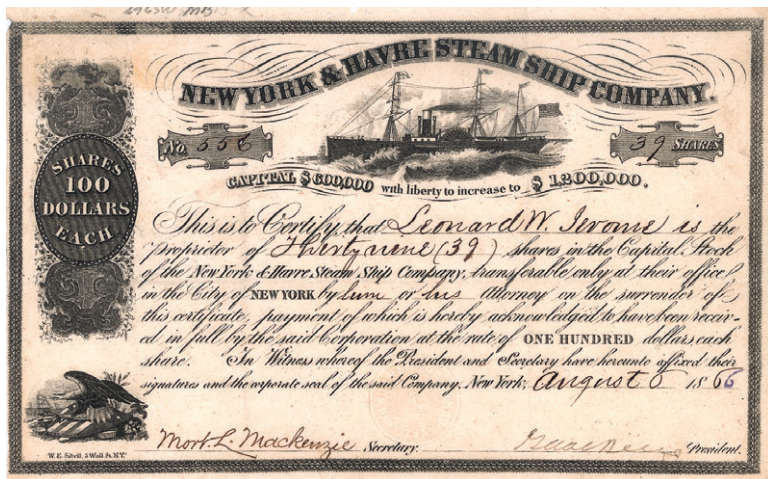 NEW YORK & HAVRE STEAM SHIP COMPANY.
No. 556
39 SHARES
CAPITAL $600,000 with liberty to increase to $1,200,000.
SHARES
100
DOLLARS
EACH
This is to Certify, that Leonard W. Jerome is the
proprietor of Thirty nine (39) shares in the Capital Stock
of the New York & Havre Steam Ship Company, transferable only at their office
in the City of NEW YORK by him or his Attorney on the surrender of
this certificate, payment of which is hereby acknowledged to have been receiv-
ed in full by the said Corporation at the rate of ONE HUNDRED dollars each
share. In Witness whereof the President and Secretary have hereunto affixed their
signatures and the corporate seal of the said Company, New York, August 6 1866
Mort. L. Mackenzie Secretary.
President.
W. E. Sibell, 5 Wall St. N.Y.